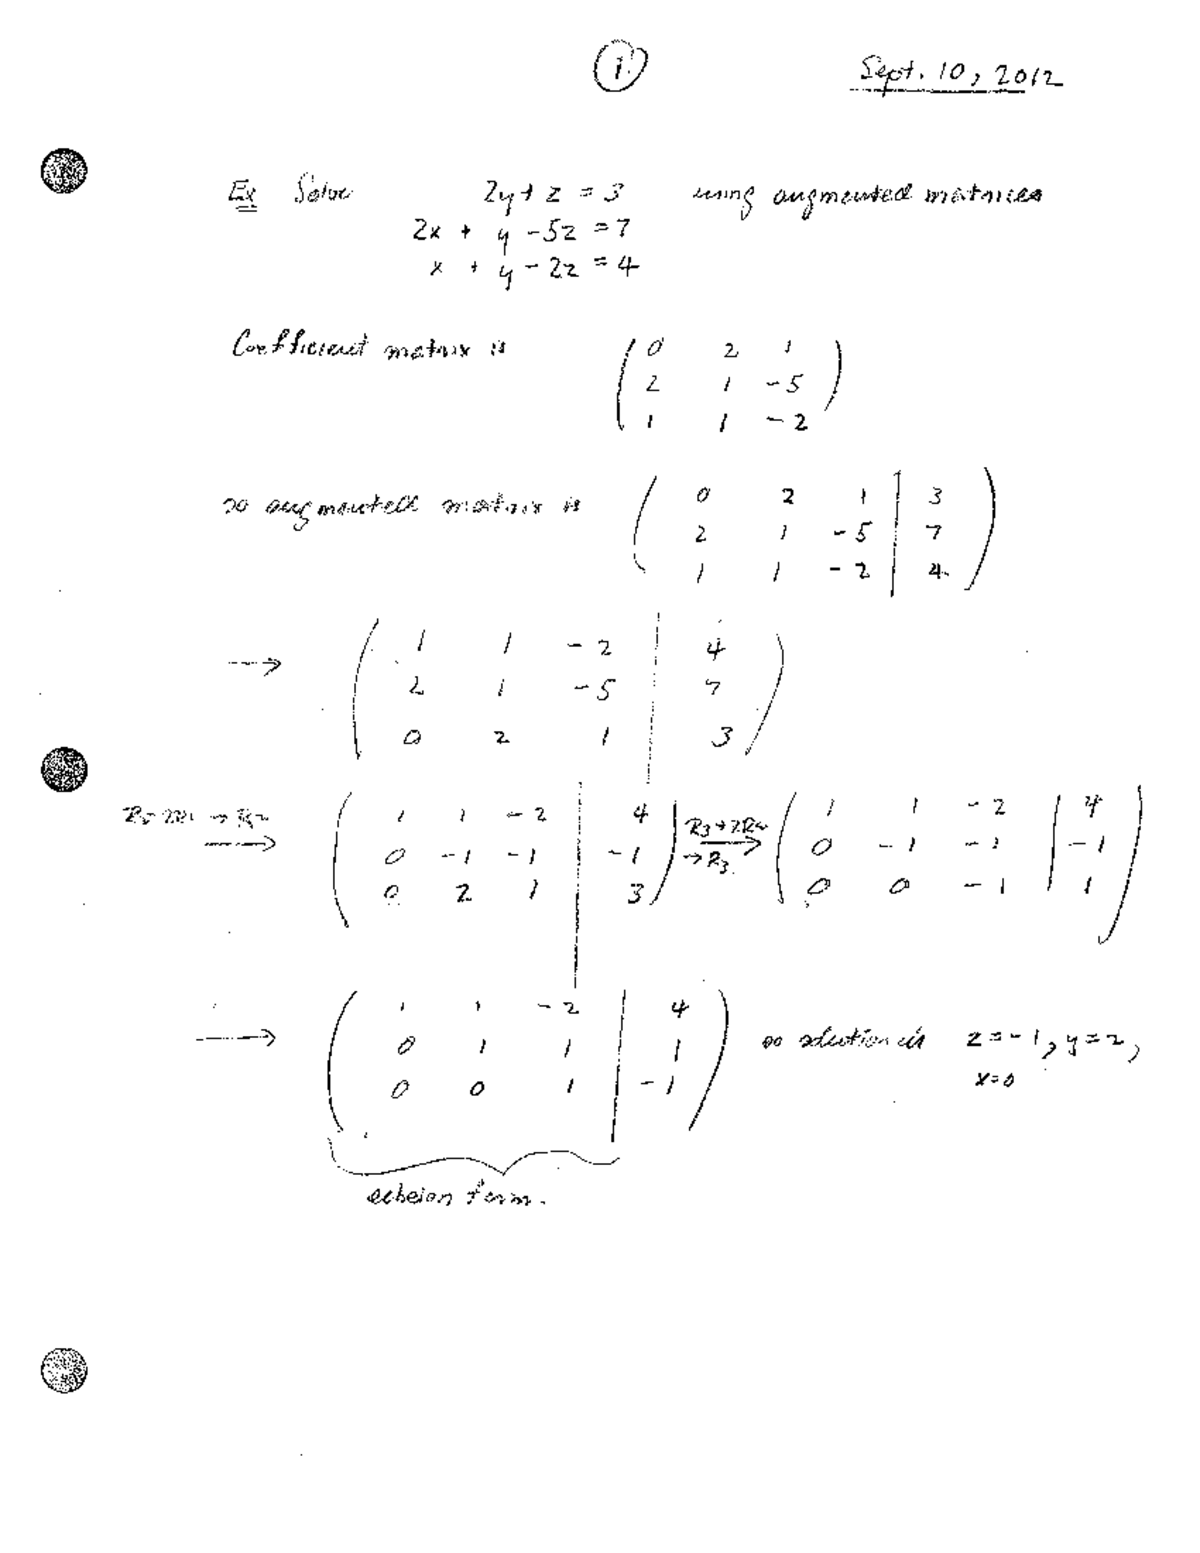 1.
Sept. 10, 2012
Ex Solve 2y + z = 3 using augmented matrices
2x + y - 5z = 7
x + y - 2z = 4
Coefficient matrix is ( 0 2 1
2 1 -5
1 1 -2 )
so augmented matrix is ( 0 2 1 | 3
2 1 -5 | 7
1 1 -2 | 4 )
→ ( 1 1 -2 | 4
2 1 -5 | 7
0 2 1 | 3 )
R2-2R1 → R2
→ ( 1 1 -2 | 4
0 -1 -1 | -1
0 2 1 | 3 )
R3+2R2
→R3
→ ( 1 1 -2 | 4
0 -1 -1 | -1
0 0 -1 | 1 )
→ ( 1 1 -2 | 4
0 1 1 | 1
0 0 1 | -1 )
so solution is z=-1, y=2,
x=0
echelon form.